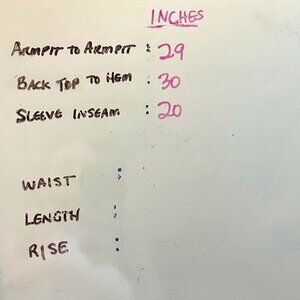 INCHES
ARMPIT TO ARMPIT : 29
BACK TOP TO HEM : 30
SLEEVE INSEAM : 20
WAIST :
LENGTH :
RISE :